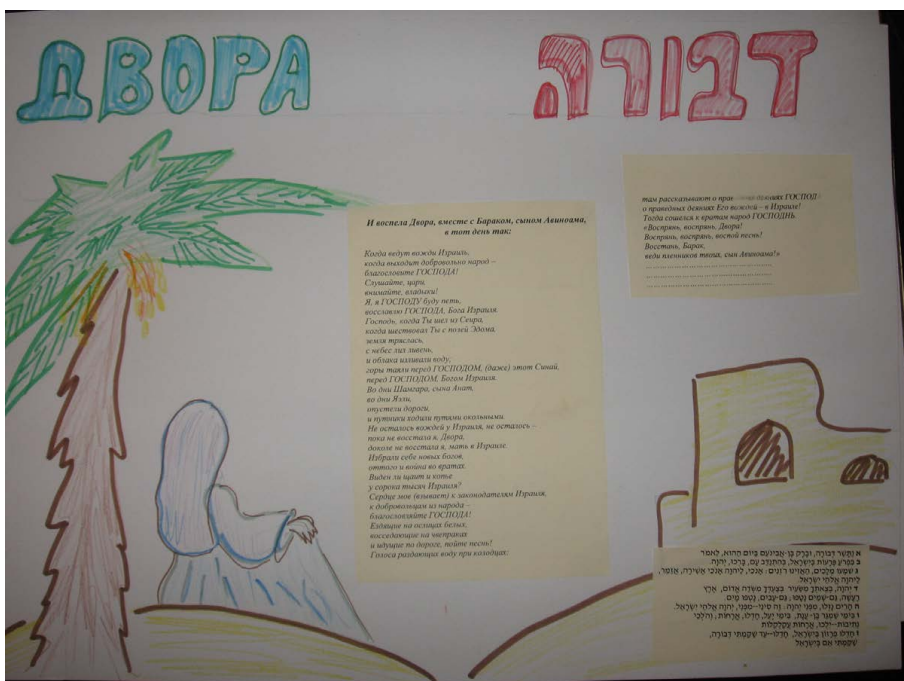 ДВОРА
דבורה
И воспела Двора, вместе с Бараком, сыном Авиноама,
в тот день так:
Когда ведут вожди Израиль,
когда выходит добровольно народ –
благословите ГОСПОДА!
Слушайте, цари,
внимайте, владыки!
Я, я ГОСПОДУ буду петь,
восславлю ГОСПОДА, Бога Израиля.
Господь, когда Ты шел из Сеира,
когда шествовал Ты с полей Эдома,
земля тряслась,
с небес лил ливень,
и облака изливали воду;
горы таяли перед ГОСПОДОМ, (даже) этот Синай,
перед ГОСПОДОМ, Богом Израиля.
Во дни Шамгара, сына Анат,
во дни Яэли,
опустели дороги,
и путники ходили путями окольными.
Не осталось вождей у Израиля, не осталось –
пока не восстала я, Двора,
доколе не восстала я, мать в Израиле.
Избрали себе новых богов,
оттого и война во вратах.
Виден ли щит и копье
у сорока тысяч Израиля?
Сердце мое (взывает) к законодателям Израиля,
к добровольцам из народа –
благословляйте ГОСПОДА!
Ездящие на ослицах белых,
восседающие на чепраках
и идущие по дороге, пойте песнь!
Голоса раздающих воду при колодцах:
там рассказывают о деяниях ГОСПОД
о праведных деяниях Его вождей – в Израиле!
Тогда сошелся к вратам народ ГОСПОДНЬ.
«Воспрянь, воспрянь, Двора!
Воспрянь, воспрянь, воспой песнь!
Восстань, Барак,
веди пленников твоих, сын Авиноама!»
א וַתָּשַׁר דְּבוֹרָה, וּבָרָק בֶּן-אֲבִינֹעַם, בַּיּוֹם הַהוּא, לֵאמֹר
ב בִּפְרֹעַ פְּרָעוֹת בְּיִשְׂרָאֵל, בְּהִתְנַדֵּב עָם, בָּרְכוּ, יְהוָה.
ג שִׁמְעוּ מְלָכִים, הַאֲזִינוּ רֹזְנִים: אָנֹכִי, לַיהוָה אָנֹכִי אָשִׁירָה, אֲזַמֵּר,
לַיהוָה אֱלֹהֵי יִשְׂרָאֵל
ד יְהוָה, בְּצֵאתְךָ מִשֵּׂעִיר בְּצַעְדְּךָ מִשְּׂדֵה אֱדוֹם, אֶרֶץ
רָעָשָׁה, גַּם-שָׁמַיִם נָטָפוּ; גַּם-עָבִים, נָטְפוּ מָיִם.
ה הָרִים נָזְלוּ, מִפְּנֵי יְהוָה: זֶה סִינַי--מִפְּנֵי, יְהוָה אֱלֹהֵי יִשְׂרָאֵל.
ו בִּימֵי שַׁמְגַּר בֶּן-עֲנָת, בִּימֵי יָעֵל, חָדְלוּ, אֳרָחוֹת; וְהֹלְכֵי
נְתִיבוֹת--יֵלְכוּ, אֳרָחוֹת עֲקַלְקַלּוֹת
ז חָדְלוּ פְרָזוֹן בְּיִשְׂרָאֵל, חָדֵלּוּ--עַד שַׁקַּמְתִּי דְּבוֹרָה,
שַׁקַּמְתִּי אֵם בְּיִשְׂרָאֵל